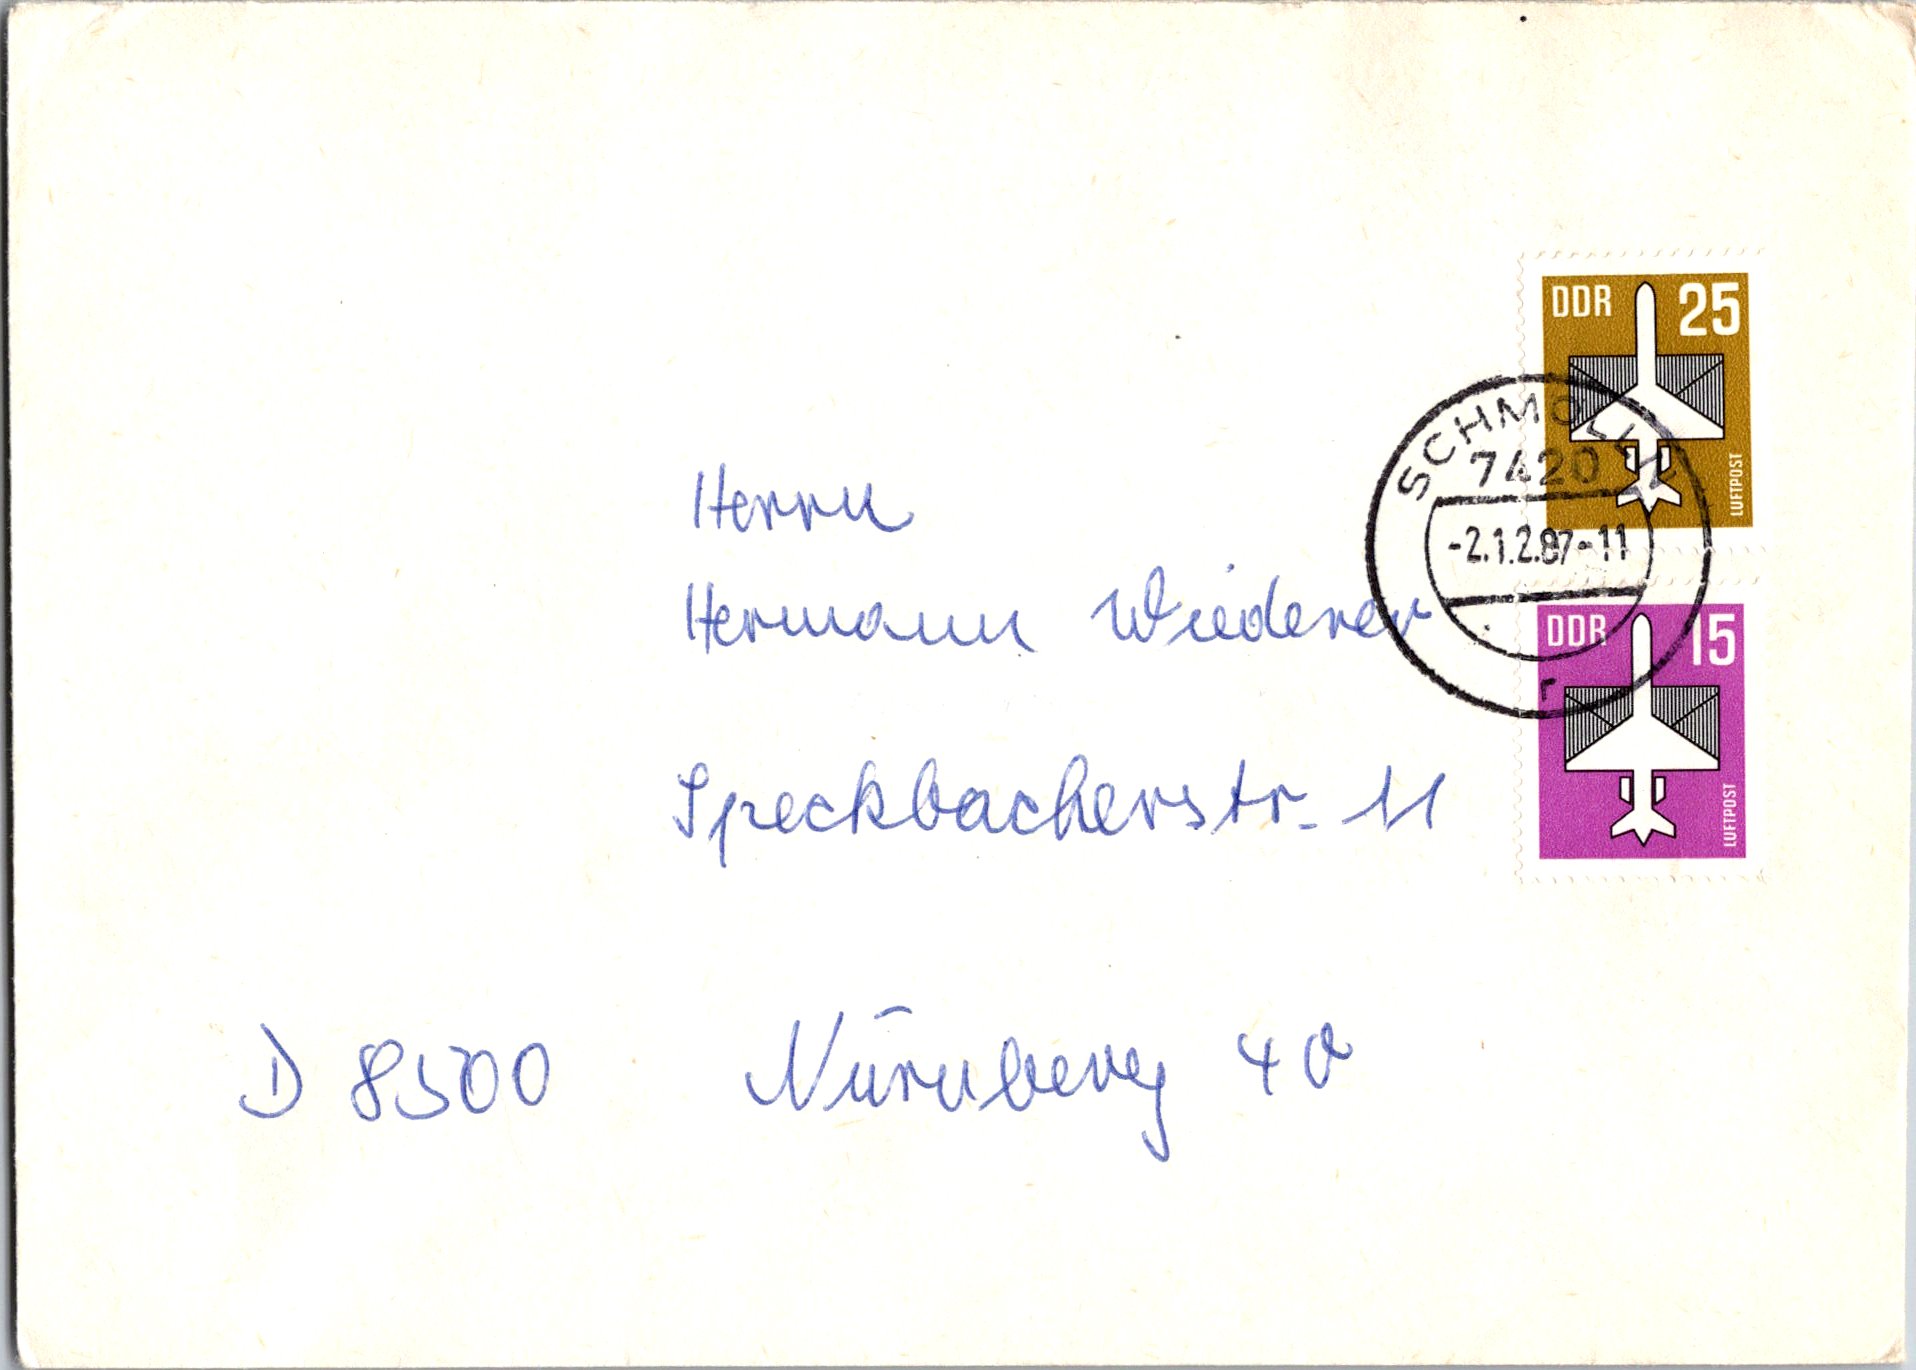 DDR 25
LUFTPOST
SCHMÖLLN
7420
-2.1.2.87-11
r
DDR 15
LUFTPOST
Herrn
Hermann Wiederer
Speckbacherstr. 11
D 8500 Nürnberg 40